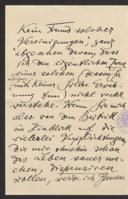 Kein Freund solcher
Vereinigungen, ganz
abgesehen davon, dass
ich den eigentlichen Zweck
einer solchen (dessen
keine
) nicht recht
verstehe. Wenn Sie mich
also von dem Beitritt
im Hinblick auf die
vielerlei Verpflichtungen
die mir ohnehin schon
das Leben sauer ma-
chen, dispensiren
wollen, werde ich Ihnen